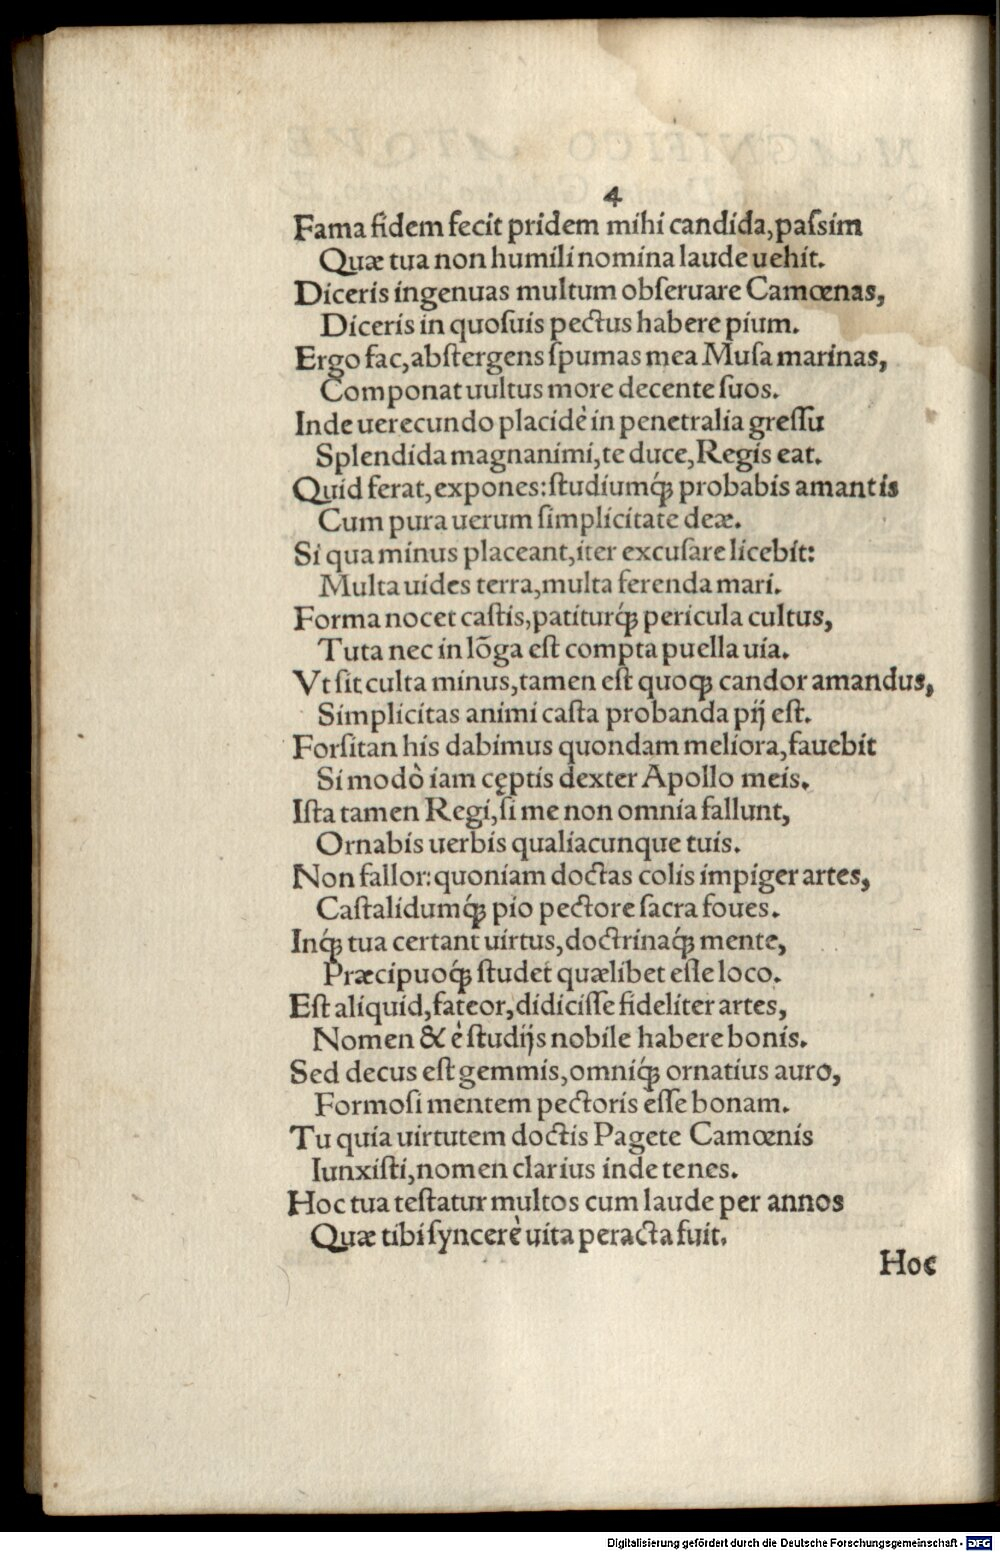 4
Fama fidem fecit pridem mihi candida, paſsim
Quæ tua non humili nomina laude uehit.
Diceris ingenuas multum obſeruare Camœnas,
Diceris in quoſuis pectus habere pium.
Ergo fac, abſtergens ſpumas mea Muſa marinas,
Componat uultus more decente ſuos.
Inde uerecundo placidè in penetralia greſſu
Splendida magnanimi, te duce, Regis eat.
Quid ferat, expones: ſtudiumq́ꝫ probabis amantis
Cum pura uerum ſimplicitate deæ.
Si qua minus placeant, iter excuſare licebit:
Multa uides terra, multa ferenda mari.
Forma nocet caſtis, patiturq́ꝫ pericula cultus,
Tuta nec in lõga eſt compta puella uia.
Vt ſit culta minus, tamen eſt quoqꝫ candor amandus,
Simplicitas animi caſta probanda pij eſt.
Forſitan his dabimus quondam meliora, fauebit
Si modò iam cęptis dexter Apollo meis.
Iſta tamen Regi, ſi me non omnia fallunt,
Ornabis uerbis qualiacunque tuis.
Non fallor: quoniam doctas colis impiger artes,
Caſtalidumq́ꝫ pio pectore ſacra foues.
Inq́ꝫ tua certant uirtus, doctrinaq́ꝫ mente,
Præcipuoq́ꝫ ſtudet quælibet eſſe loco.
Eſt aliquid, fateor, didiciſſe fideliter artes,
Nomen & è ſtudijs nobile habere bonis.
Sed decus eſt gemmis, omniq́ꝫ ornatius auro,
Formoſi mentem pectoris eſſe bonam.
Tu quia uirtutem doctis Pagete Camœnis
Iunxiſti, nomen clarius inde tenes.
Hoc tua teſtatur multos cum laude per annos
Quæ tibi ſyncerè uita peracta fuit.
Hoc
Digitalisierung gefördert durch die Deutsche Forschungsgemeinschaft - DFG